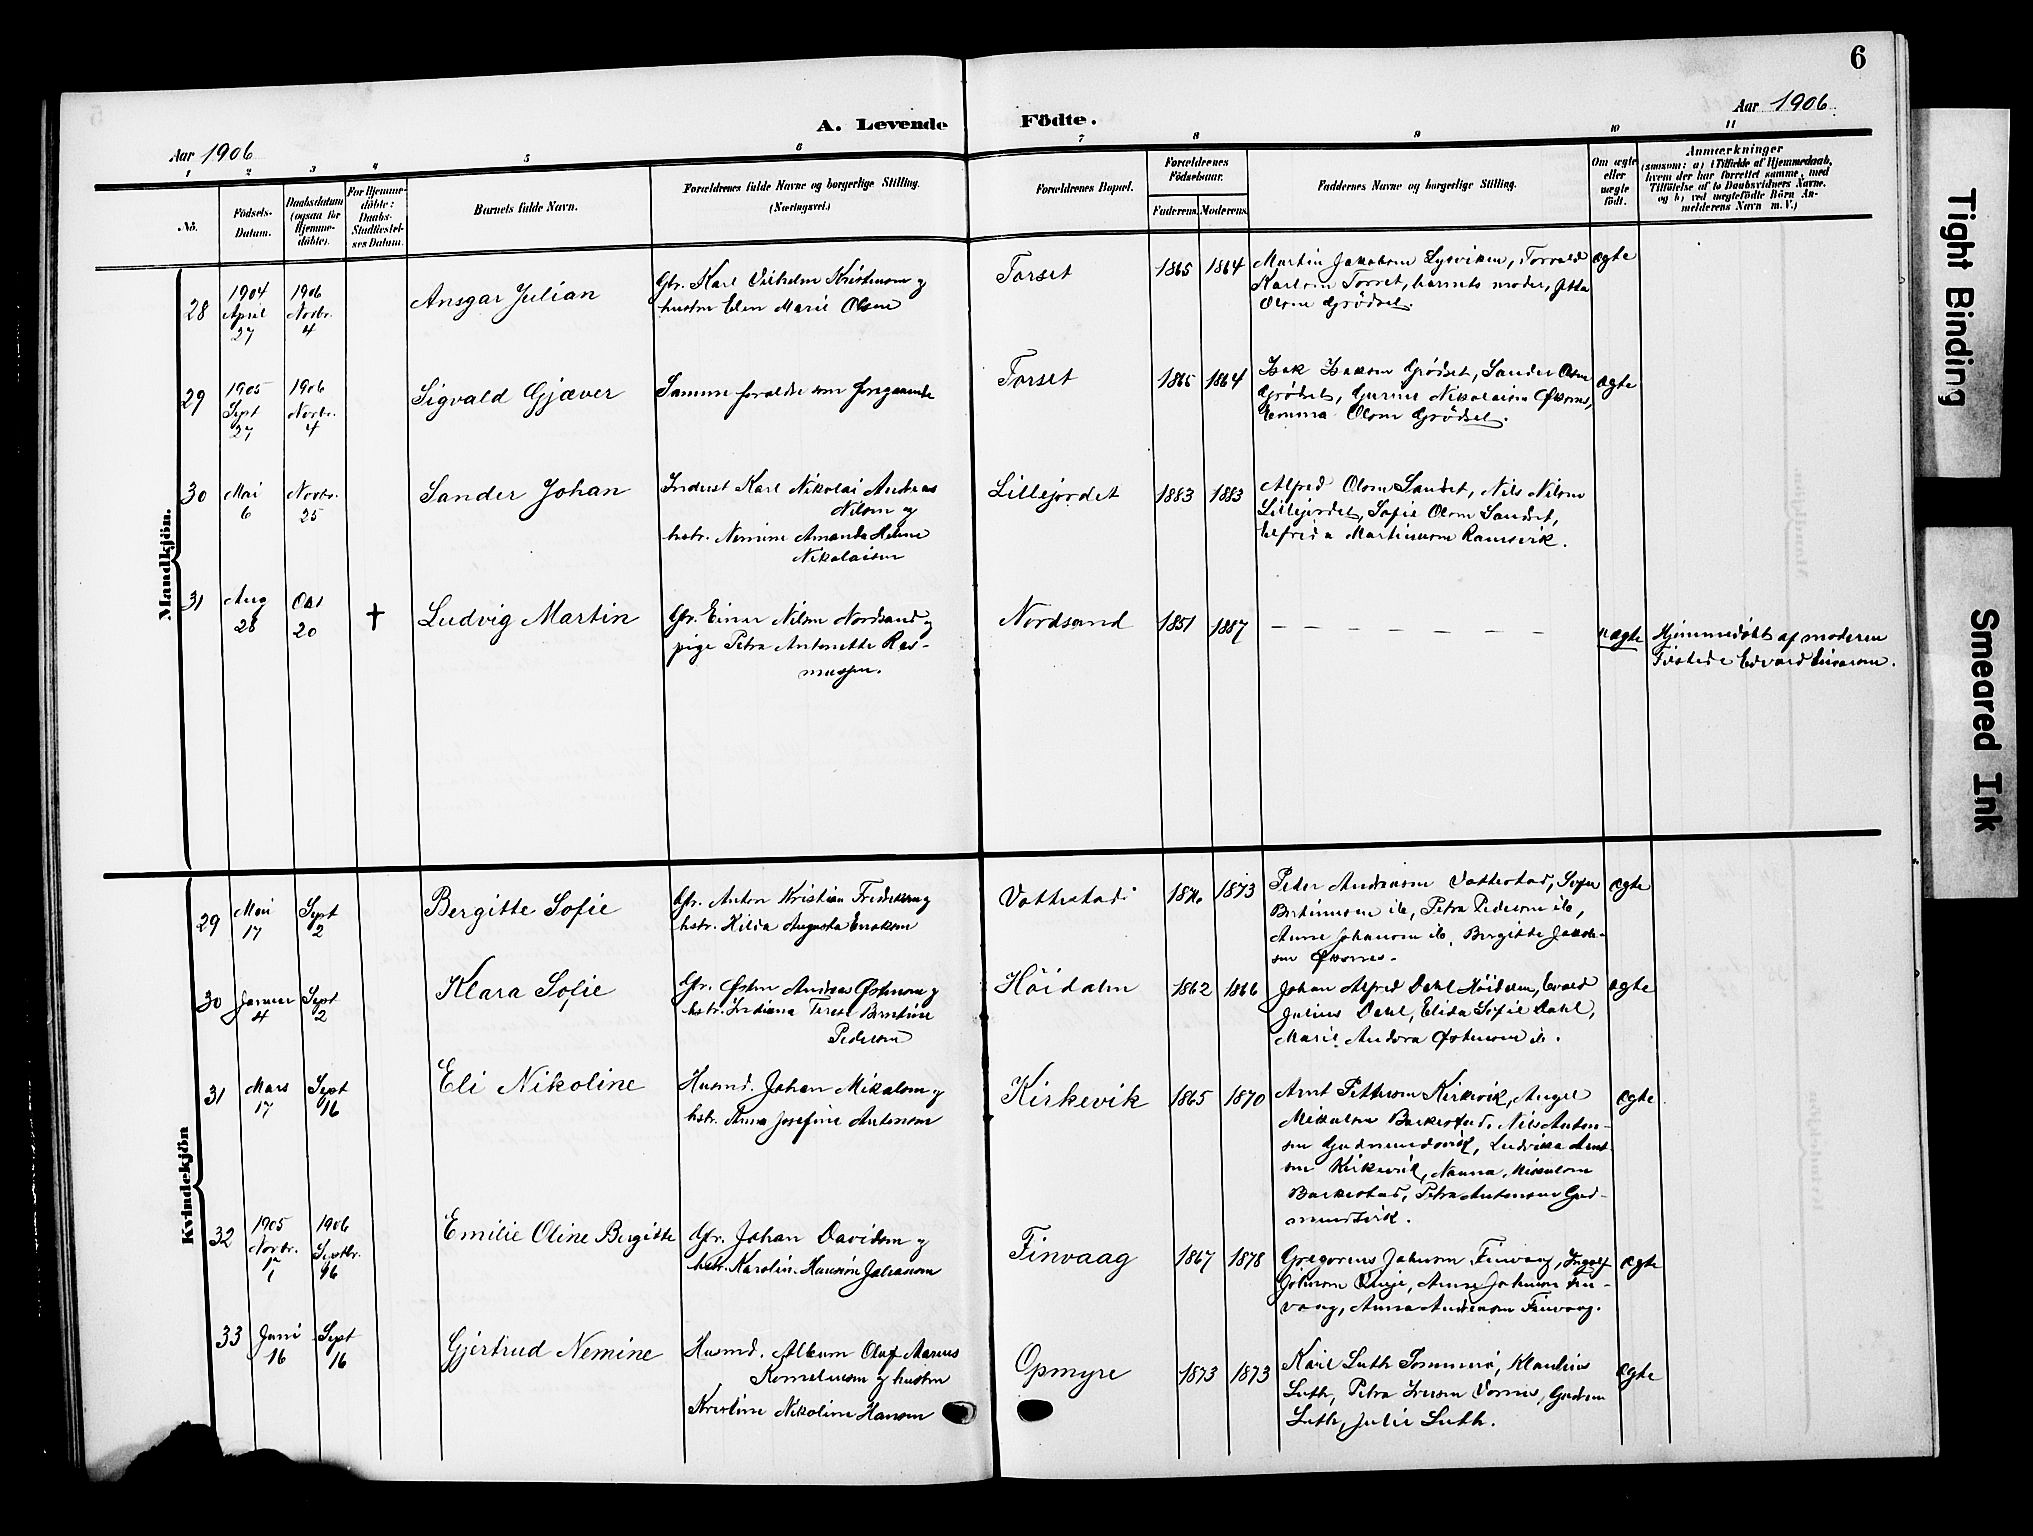 6
Aar 1906
A. Levende Födte.
Aar 1906
1 2 3 4 5 6 7 8 9 10 11
No.
Födsels-
Datum.
Daabsdatum
(ogsaa for
Hjemme-
döbte).
For Hjemme-
döbte:
Daabs-
Stadfæstel-
ses Datum.
Barnets fulde Navn.
Forældrenes fulde Navne og borgerlige Stilling.
(Næringsvei.)
Forældrenes Bopæl.
Forældrenes
Födselsaar.
Faderens.
Moderens.
Faddernes Navne og borgerlige Stilling.
Om ægte
eller
uægte
födt.
Anmærkninger
(saasom: a) i Tilfælde af Hjemmedaab,
hvem der har forrettet samme, med
Tilföielse af to Daabsvidners Navne,
og b) ved uægtefödte Börn An-
melderens Navn m. V.)
Mandkjön.
28
1904
April
27
1906
Novbr.
4
Ansgar Julian
Gbr. Karl Vilhelm Kristensen og
hustru Elen Marie Olsen
Forset
1865
1864
Martin Jakobsen Lysviken, Torvald
Karlsen Forset, barnets moder, Jetta
Olsen Grødset.
ægte
29
1905
Sept
27
1906
Novbr.
4
Sigvald Gjæver
Samme forældre som foregaaende
Forset
1865
1864
Isak Isaksen Grødset, Sander Olsen
Grødset, Gurine Nikolaisen Øksnes,
Emma Olsen Grødset.
ægte
30
Mai
6
Novbr.
25
Sander Johan
Inderst Karl Nikolai Andreas
Nilsen og
hstr. Nemine Amanda Helene
Nikolaisen
Lillejordet
1883
1883
Alfred Olsen Sandset, Nils Nilsen
Lillejordet, Sofie Olsen Sandset,
Martinussen Ramsvik.
31
Aug
28
Okt
20
†
Ludvig Martin
Gbr. Einar Nilsen Nordsand og
pige Petra Antonette Ras-
mussen.
Nordsand
1851
1887
— — — — — — —
uægte
Hjemmedøbt af moderen
Tilstede Edvard Einarsen.
Kvindekjön
29
Mai
17
Sept
2
Bergitte Sofie
Gbr. Anton Kristian Frederiksen og
hstr. Hilda Augusta Eriksen
Vottestad
1876
1873
Peder Andreasen Vottestad, Sofie
Bertinussen ib, Petra Pedersen ib,
Anne Johansen ib, Bergitte Jakob-
sen Øksnes.
ægte
30
Januar
4
Sept
2
Klara Sofie
Gbr. Østen Andreas Østensen og
hstr. Indiana Terese Berntine
Pedersen
Höidalen
1862
1866
Johan Alfred Dahl Höidalen, Evald
Julius Dahl, Elida Sofie Dahl,
Marie Andora Østensen ib.
ægte
31
Mars
17
Sept
16
Eli Nikoline
Husmd. Johan Mikalsen og
hstr. Anna Josefine Antonsen
Kirkevik
1865
1870
Arnt Pettersen Kirkevik, Angel
Mikalsen Barkestad, Nils Anton-
sen Gudmundsvik, Ludvikka Arnt-
sen Kirkevik, Nanna Mikalsen
Barkestad, Petra Antonsen Gud-
mundsvik.
ægte
32
1905
Novbr.
1
1906
Septbr.
16
Emilie Oline Bergitte
Gbr. Johan Davidsen og
hstr. Karoline Hansine Johansen
Finvaag
1867
1878
Gregorius Johnsen Finvaag, Ingolf
Johnsen Vinje, Anne Johnsen Fin-
vaag, Anna Andersen Finvaag.
ægte
33
Juni
16
Sept
16
Gjertrud Nemine
Husmd. Album Oluf Marius
Kornelius­sen og hustru
Kristine Nikoline Hansen
Opmyre
1873
1873
Karl Luth Sommerö, Klaudius
Luth, Petra Iversen Vornes, Gudrun
Luth, Julie Luth.
ægte
Tight Binding
Smeared Ink